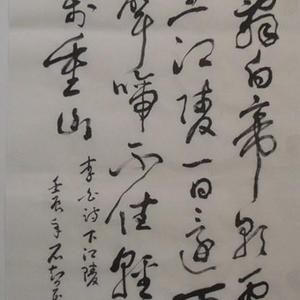 辭白帝彩雲
里江陵一日還
聲啼不住輕
萬重山
李白詩下江陵
壬辰年石